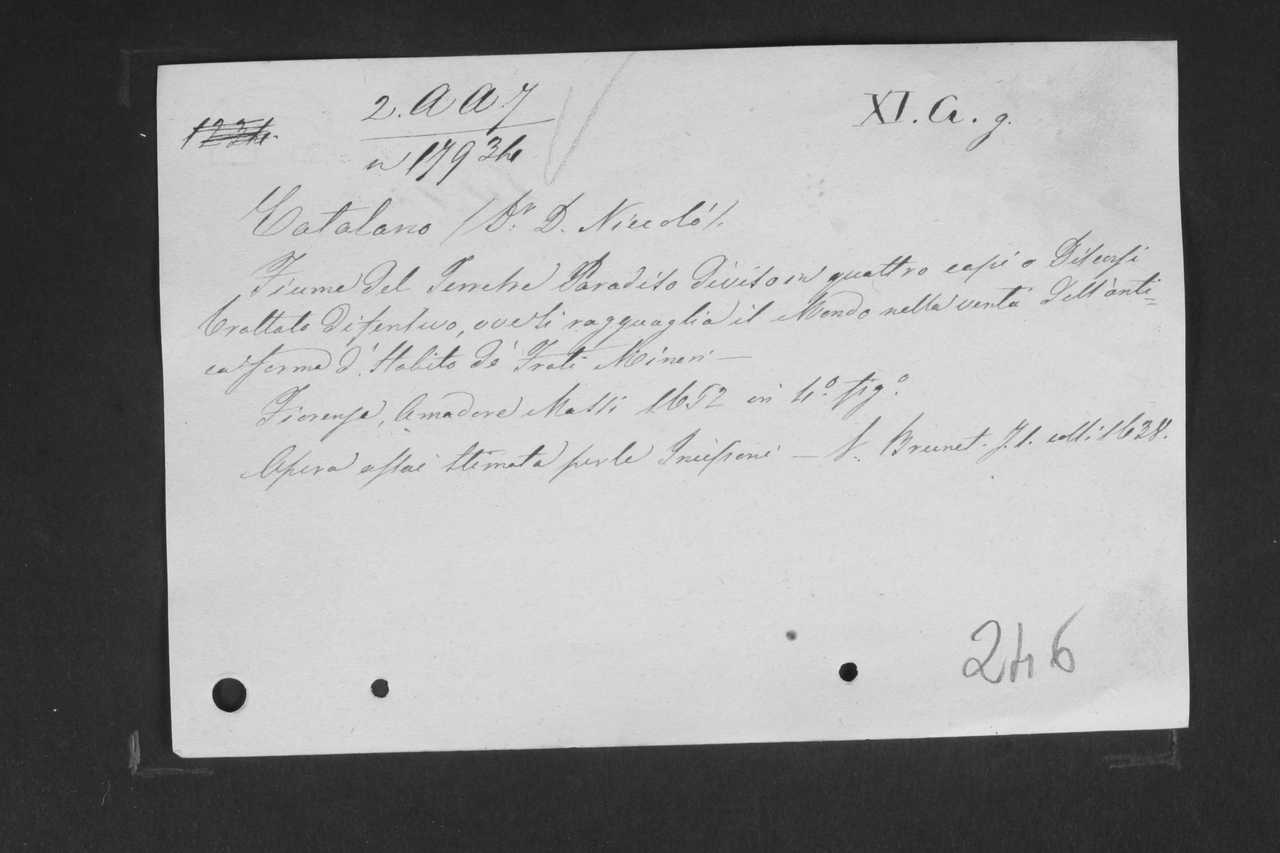 2. A A 7
XI. A. g.
1221.
n 179 34
Catalano /Dr. D. Niccolò/.
Fiume del Terrestre Paradiso diviso in quattro capi o Discorsi
trattato difensivo, ove si ragguaglia il Mondo nella verità dell'anti=
ca forma d'Habito de' Frati Minori —
Fiorenza, Amadore Massi 1652 in 4.º fig.º
Opera assai stimata per le Incisioni — V. Brunet. T. 1. coll. 1638.
246